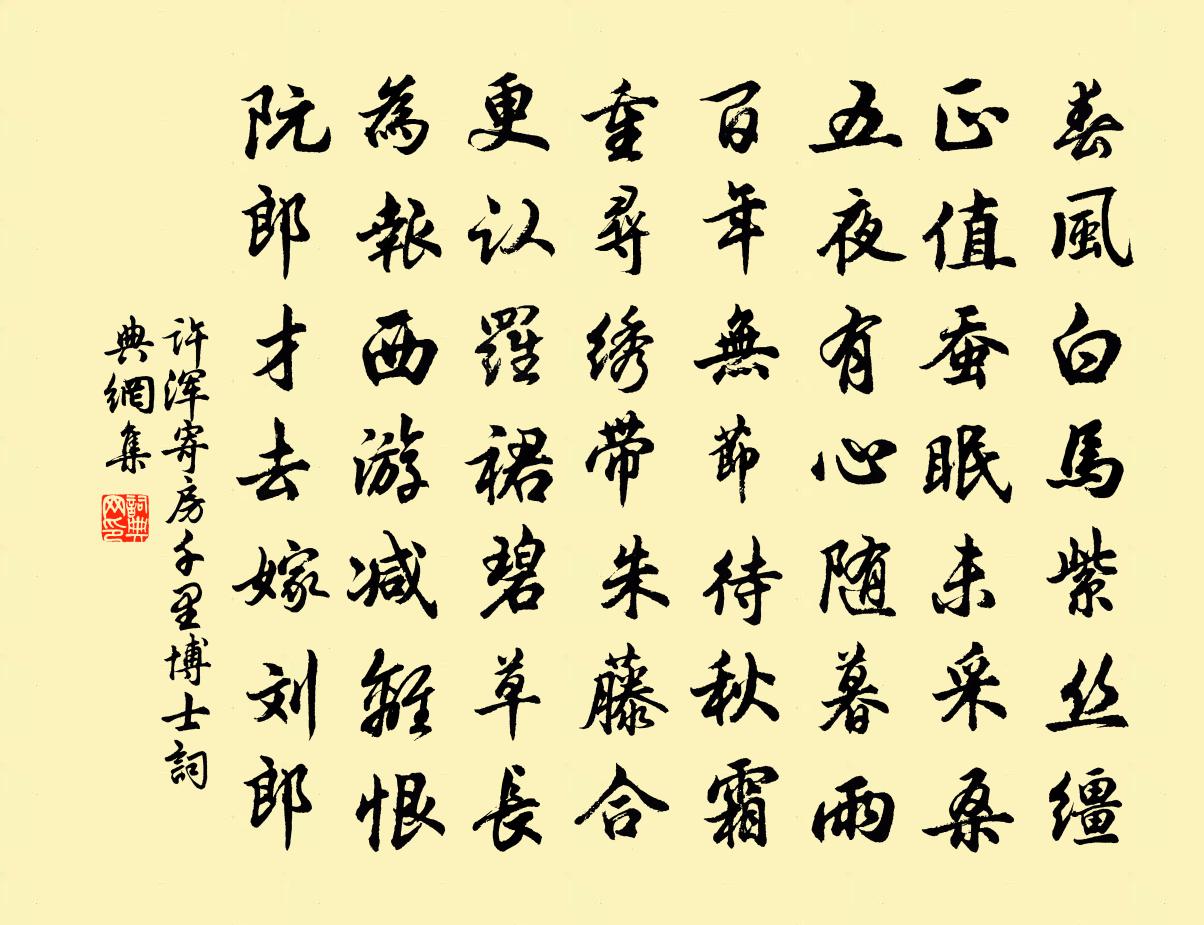 春風白馬紫丝缰
正值蚕眠未采桑
五夜有心随暮雨
百年無節待秋霜
重尋绣带朱藤合
更认羅裙碧草長
為報西游减離恨
阮郎才去嫁刘郎
许浑寄房千里博士詞
典網集
詞典网印